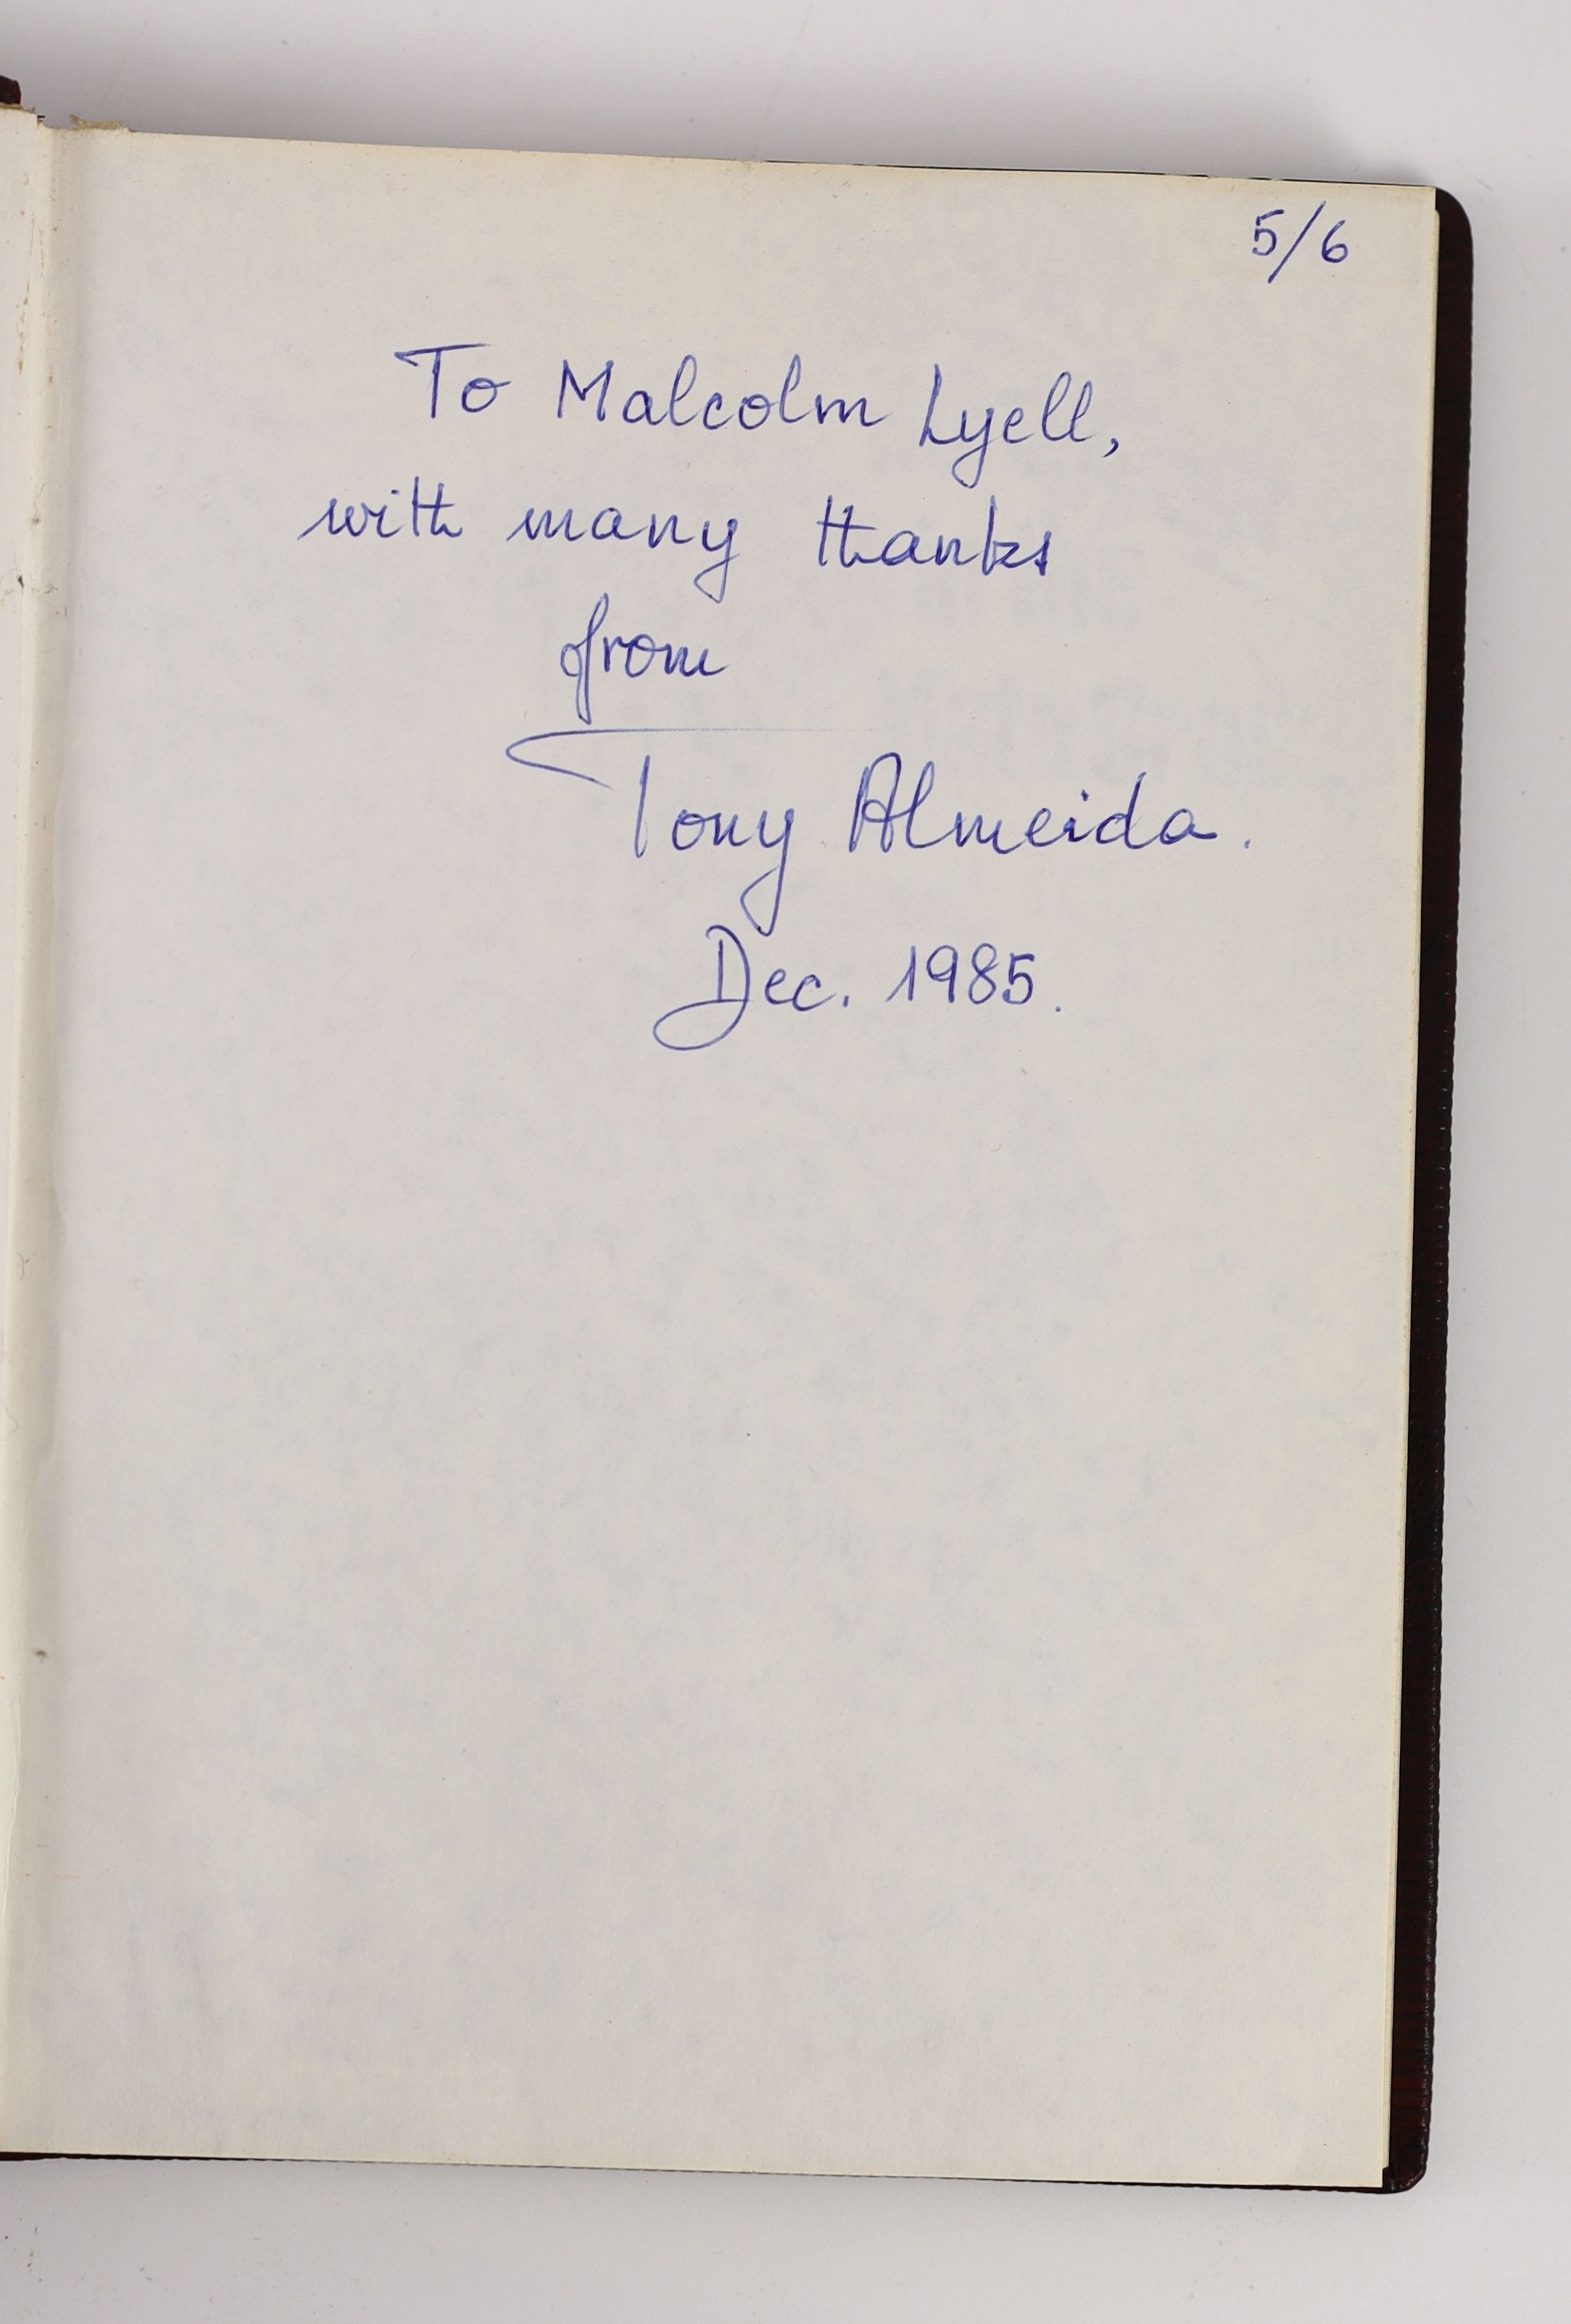 5/6
To Malcolm Lyell,
with many thanks
from
Tony Almeida.
Dec. 1985.